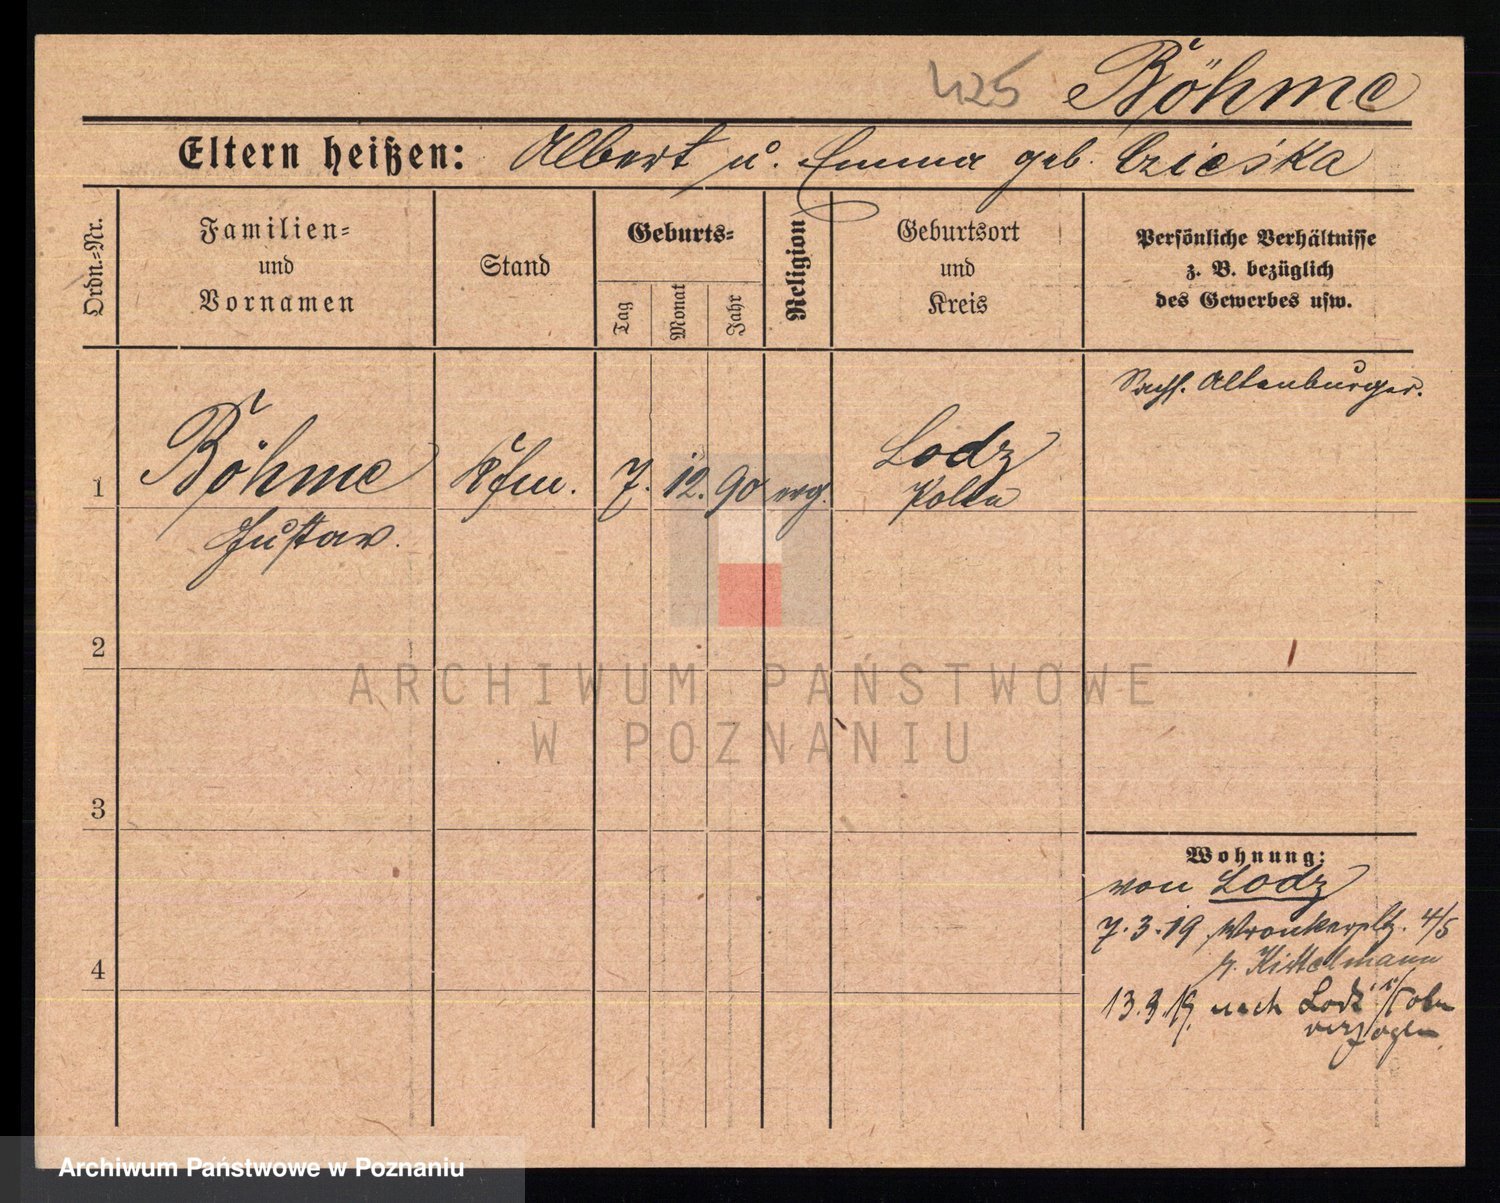 425 Böhme
Eltern heißen: Albert u. Emma geb. Czieska
Ordn.-Nr.
Familien-
und
Vornamen
Stand
Geburts-
Tag
Monat
Jahr
Religion
Geburtsort
und
Kreis
Persönliche Verhältnisse
z. B. bezüglich
des Gewerbes usw.
Sachs. Altenburger.
1 Böhme Kfm. 7. 12. 90 evg. Lodz
Gustav. Polen
2
3
4
Wohnung:
von Lodz
7.3.19 Wronkerpltz. 4/5
b. Kittelmann
13.3.19. nach Lodz
verzogen
ARCHIWUM PAŃSTWOWE
W POZNANIU
Archiwum Państwowe w Poznaniu